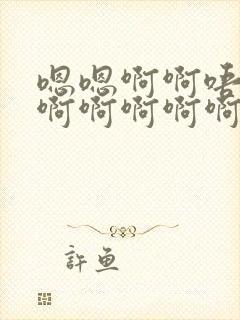 嗯嗯啊啊唔
啊啊啊啊啊
許魚